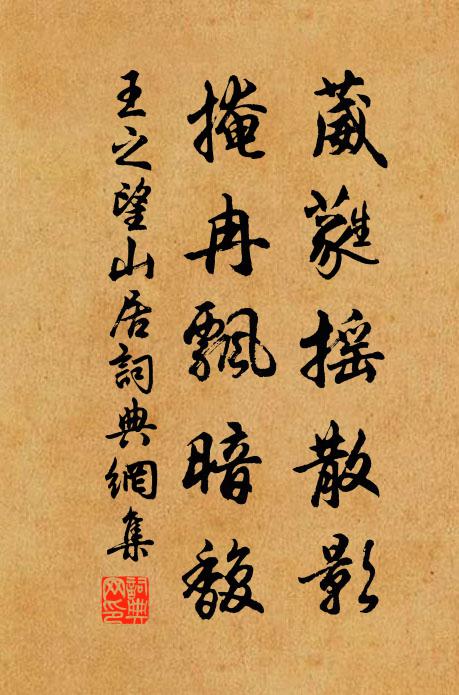 葳蕤摇散影
掩冉飄暗馥
王之望山居詞典網集
詞典網印